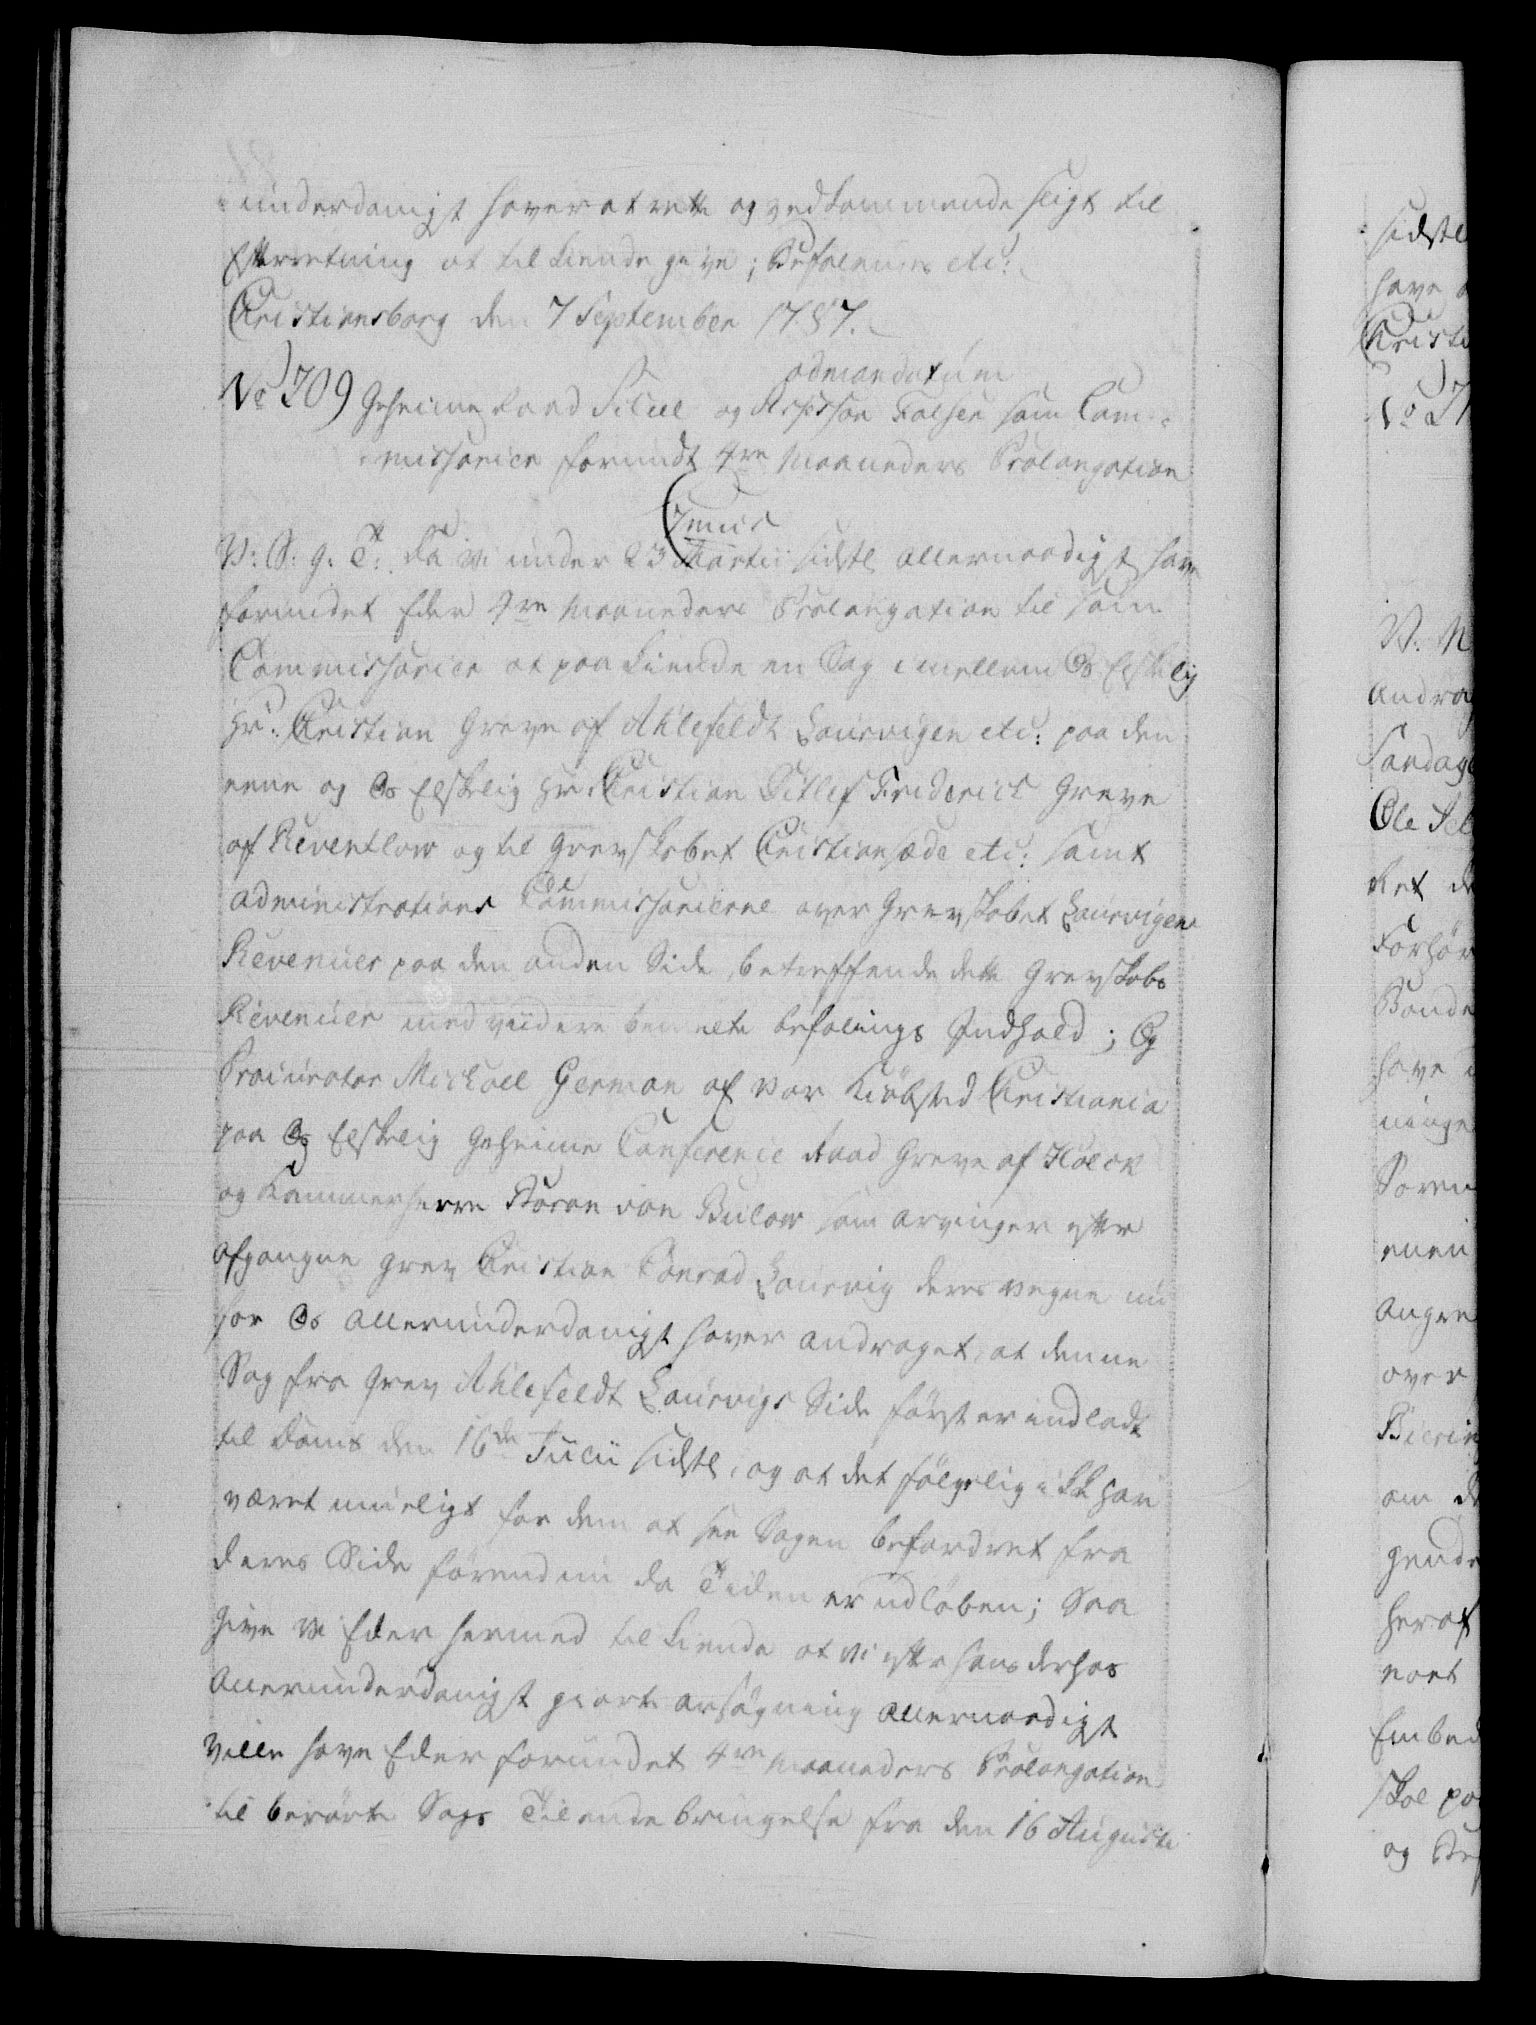 underdanigst haver at rette og vedkommende sligt til
Efterretning at tilkiende give; Befalendes etc:
Christiansborg den 7 September 1787.
ad mandatum
No 709) Geheime Raad Scheel og Assessor Falsen som Com-
missarier forundt 4re Maaneders Prolongation
Junii
V: S: g: T: Da Vi under 23 Martii sidstl allernaadigst have
forundet Eder 4re Maaneders Prolongation til som
Commissarier at paakiende en Sag imellem Os Elskelig
Hr: Christian Greve af Ahlefeldt Laurvigen etc: paa den
eene og Os Elskelig Hr: Christian Ditlef Friderich Greve
af Reventlow og til Grevskabet Christiansæde etc: samt
administrations Commissarierne over Grevskabet Laurvigens
Revenuer paa den anden Side, betreffende dette Grevskabs
Revenuer med viidere bemelte befalings Indhold; Og
Procurator Michael German af vor Kiøbsted Christiania
paa Os Elskelig Geheime Conference Raad Greve af Holck
og Kammerherre Baron von Bulow som arvinger efter
afgangne Grev Christian Conrad Laurvig deres vegne nu
for Os allerunderdanigst haver andraget, at denne
Sag fra Grev Ahlefeldt Laurvigs Side først er indladt
til Doms den 16de Julii sidstl, og at det følgelig ikke har
været mueligt for dem at see Sagen befordret fra
deres Side førend nu da Tiden er udløben; Saa
give Vi Eder hermed tilkiende at Vi efter hans derhos
allerunderdanigst giorte ansøgning allernaadigst
ville have Eder forundet 4re Maaneders Prolongation
til berørte Sags Tilendebringelse fra den 16 Augusti
sidstl
have
Christi
No 71
V: N
andrag
Søndags
Ole
Ret
Forhør
Bonde
have
ninge
Søren
enen
angre
over
om
gende
heraf
noet
Embed
skal paa
og